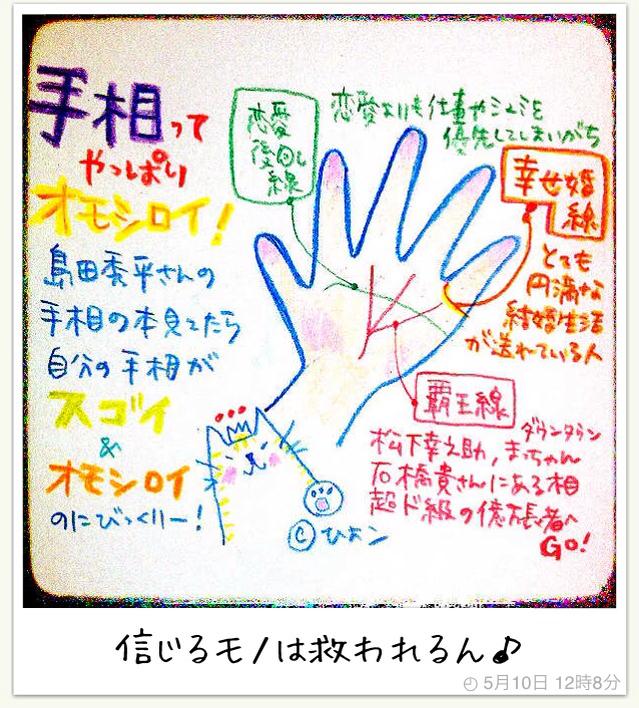 手相って
やっぱり
オモシロイ!
島田秀平さんの
手相の本見てたら
自分の手相が
スゴイ
&
オモシロイ
のにびっくりー!
恋愛
後回し
線
恋愛よりも仕事やシュミを
優先してしまいがち
幸せ婚
線
とても
円満な
結婚生活
が送れている人
覇王線
ダウンタウン
松下幸之助,まっちゃん
石橋貴さんにある相
超ド級の億万長者へ
GO!
©ひよン
信じるモノは救われるん♪
5月10日 12時8分